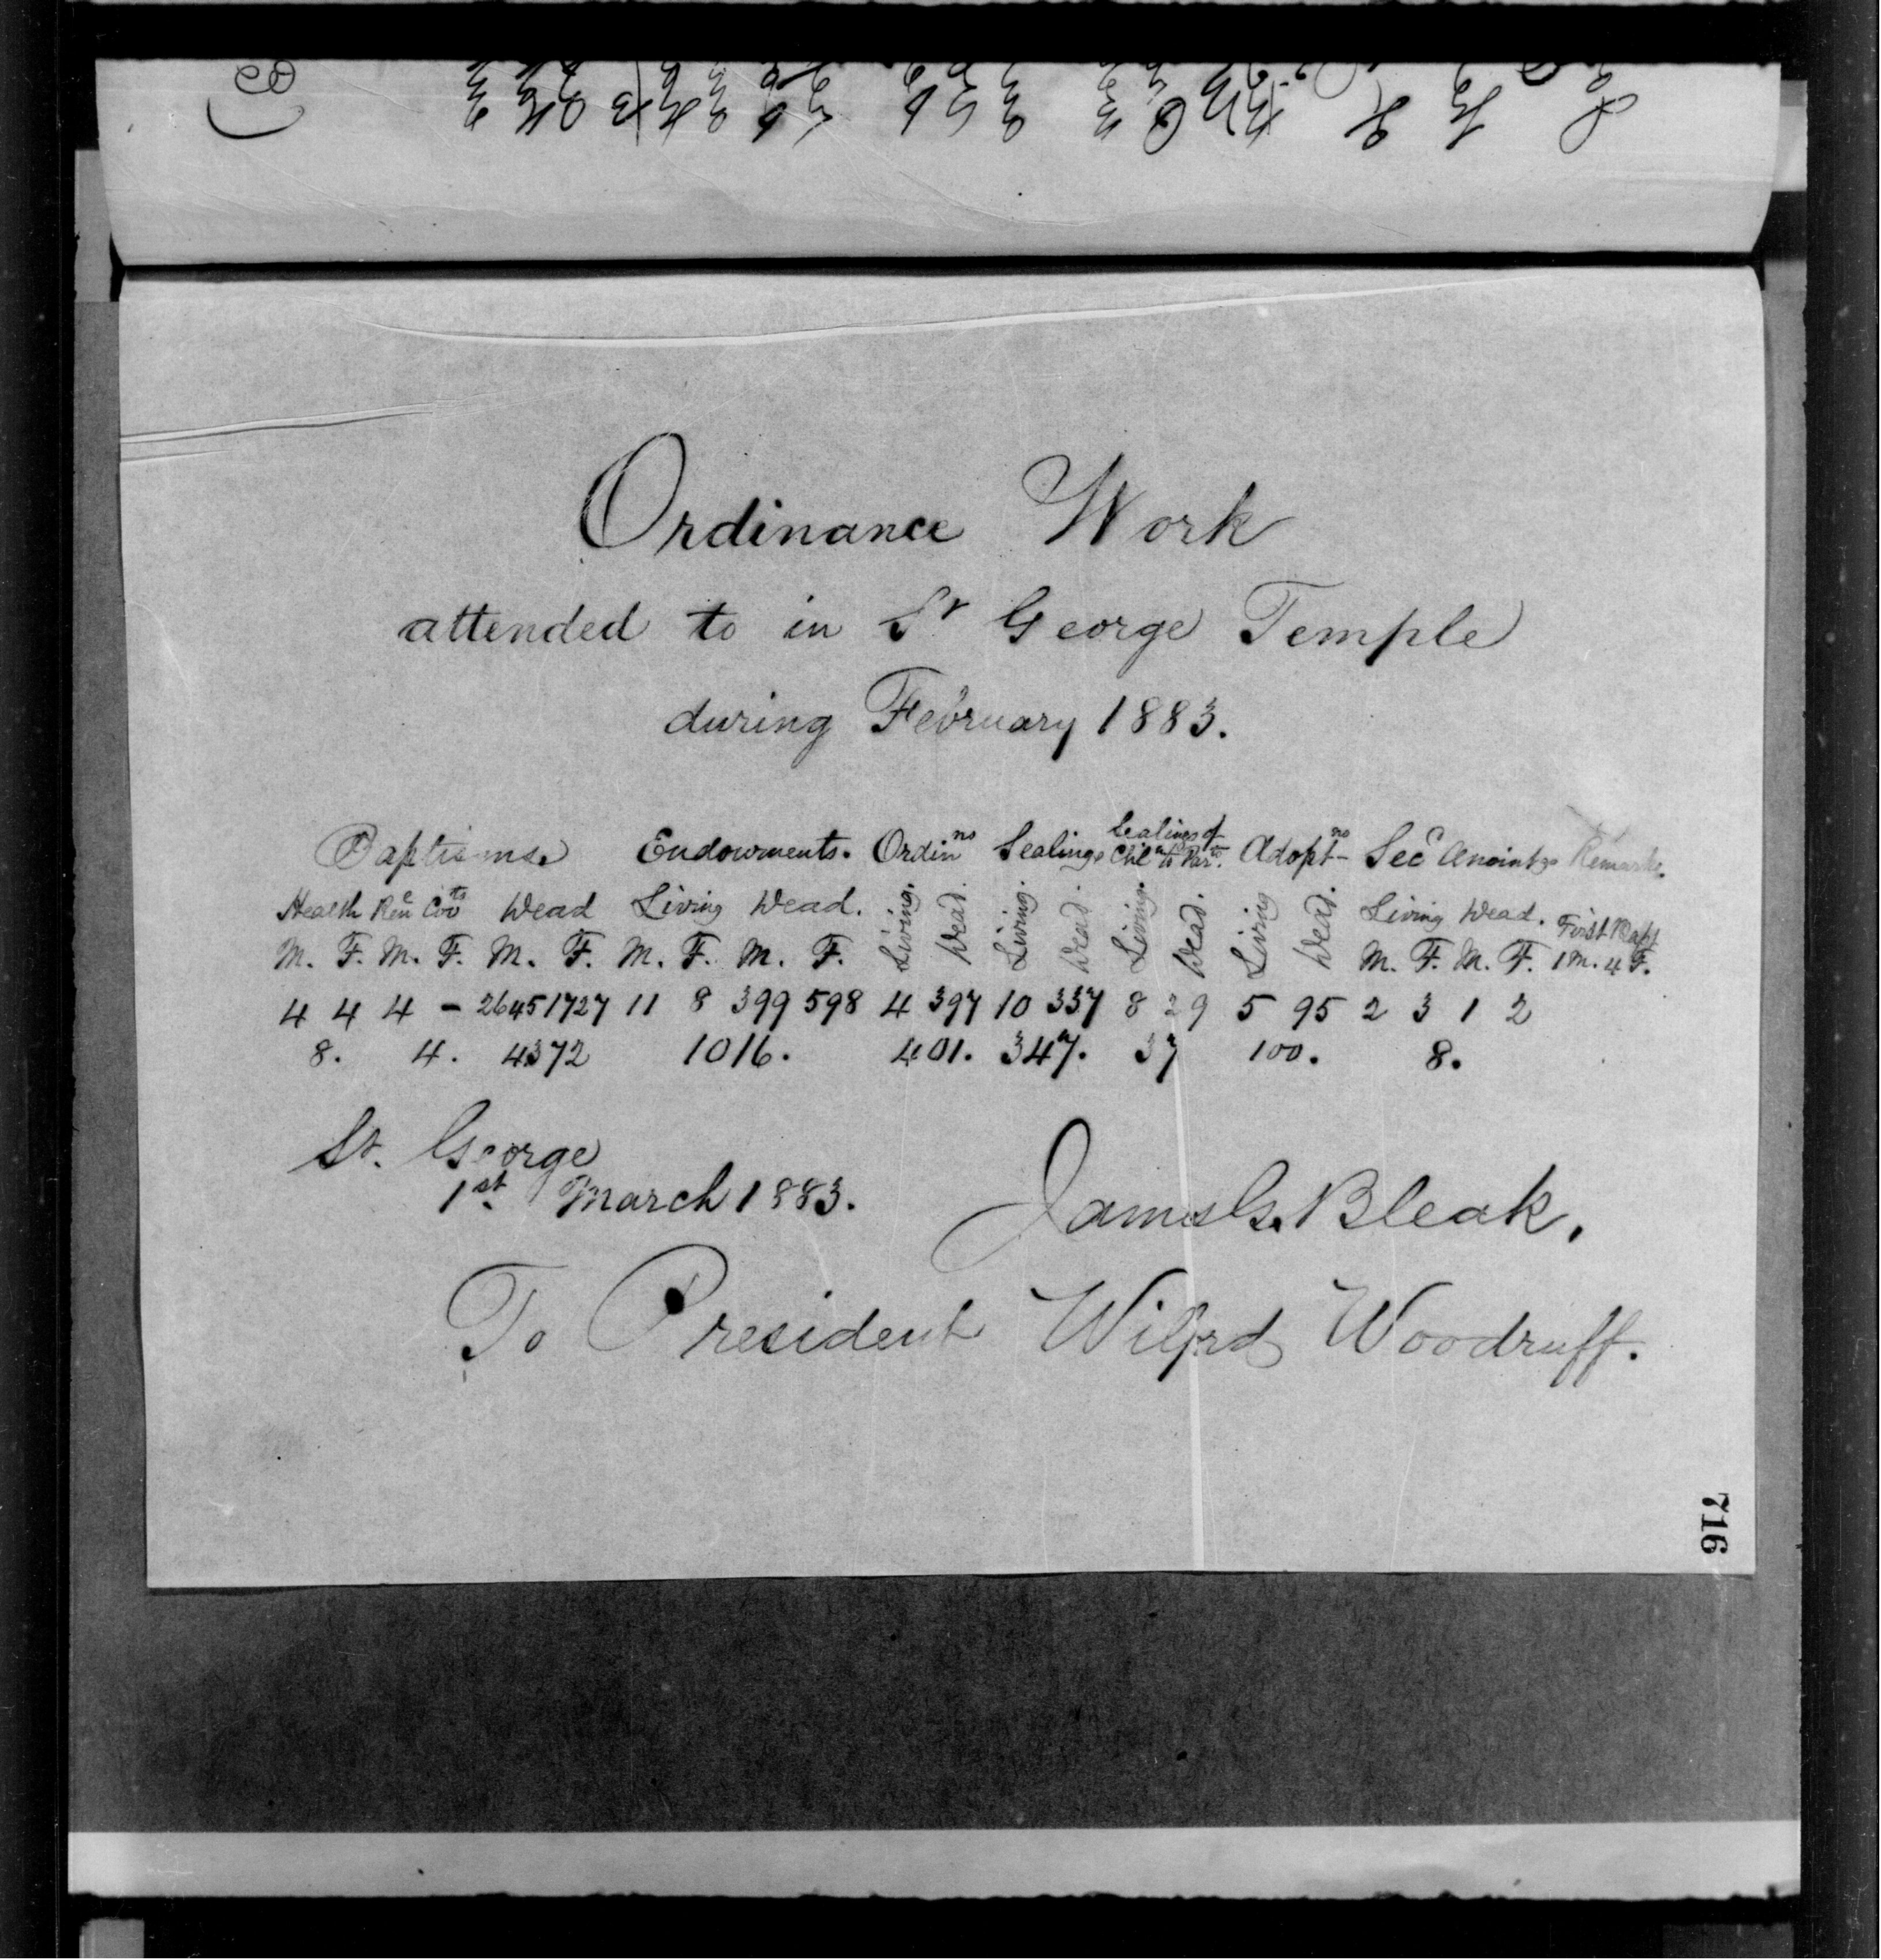 Ordinance Work
attended to in St George Temple
during February 1883.
Baptisms. Endowments. Ordin ns Sealings Sealings of Chiln to Par ts. Adopt ns Sec d Anointgs Remarks.
Health Ren Cov ts Dead Living Dead. Living. Dead. Living. Dead. Living. Dead. Living Dead. Living Dead. First Bapt
M. F. M. F. M. F. M. F. M. F. M. F. M. F. 1 M. 4 F.
4 4 4 - 2645 1727 11 8 399 598 4 397 10 337 8 29 5 95 2 3 1 2
8. 4. 4372 1016. 401. 347. 37 100. 8.
St. George
1st. March 1883.
James G. Bleak.
To President Wilfrd Woodruff.
716